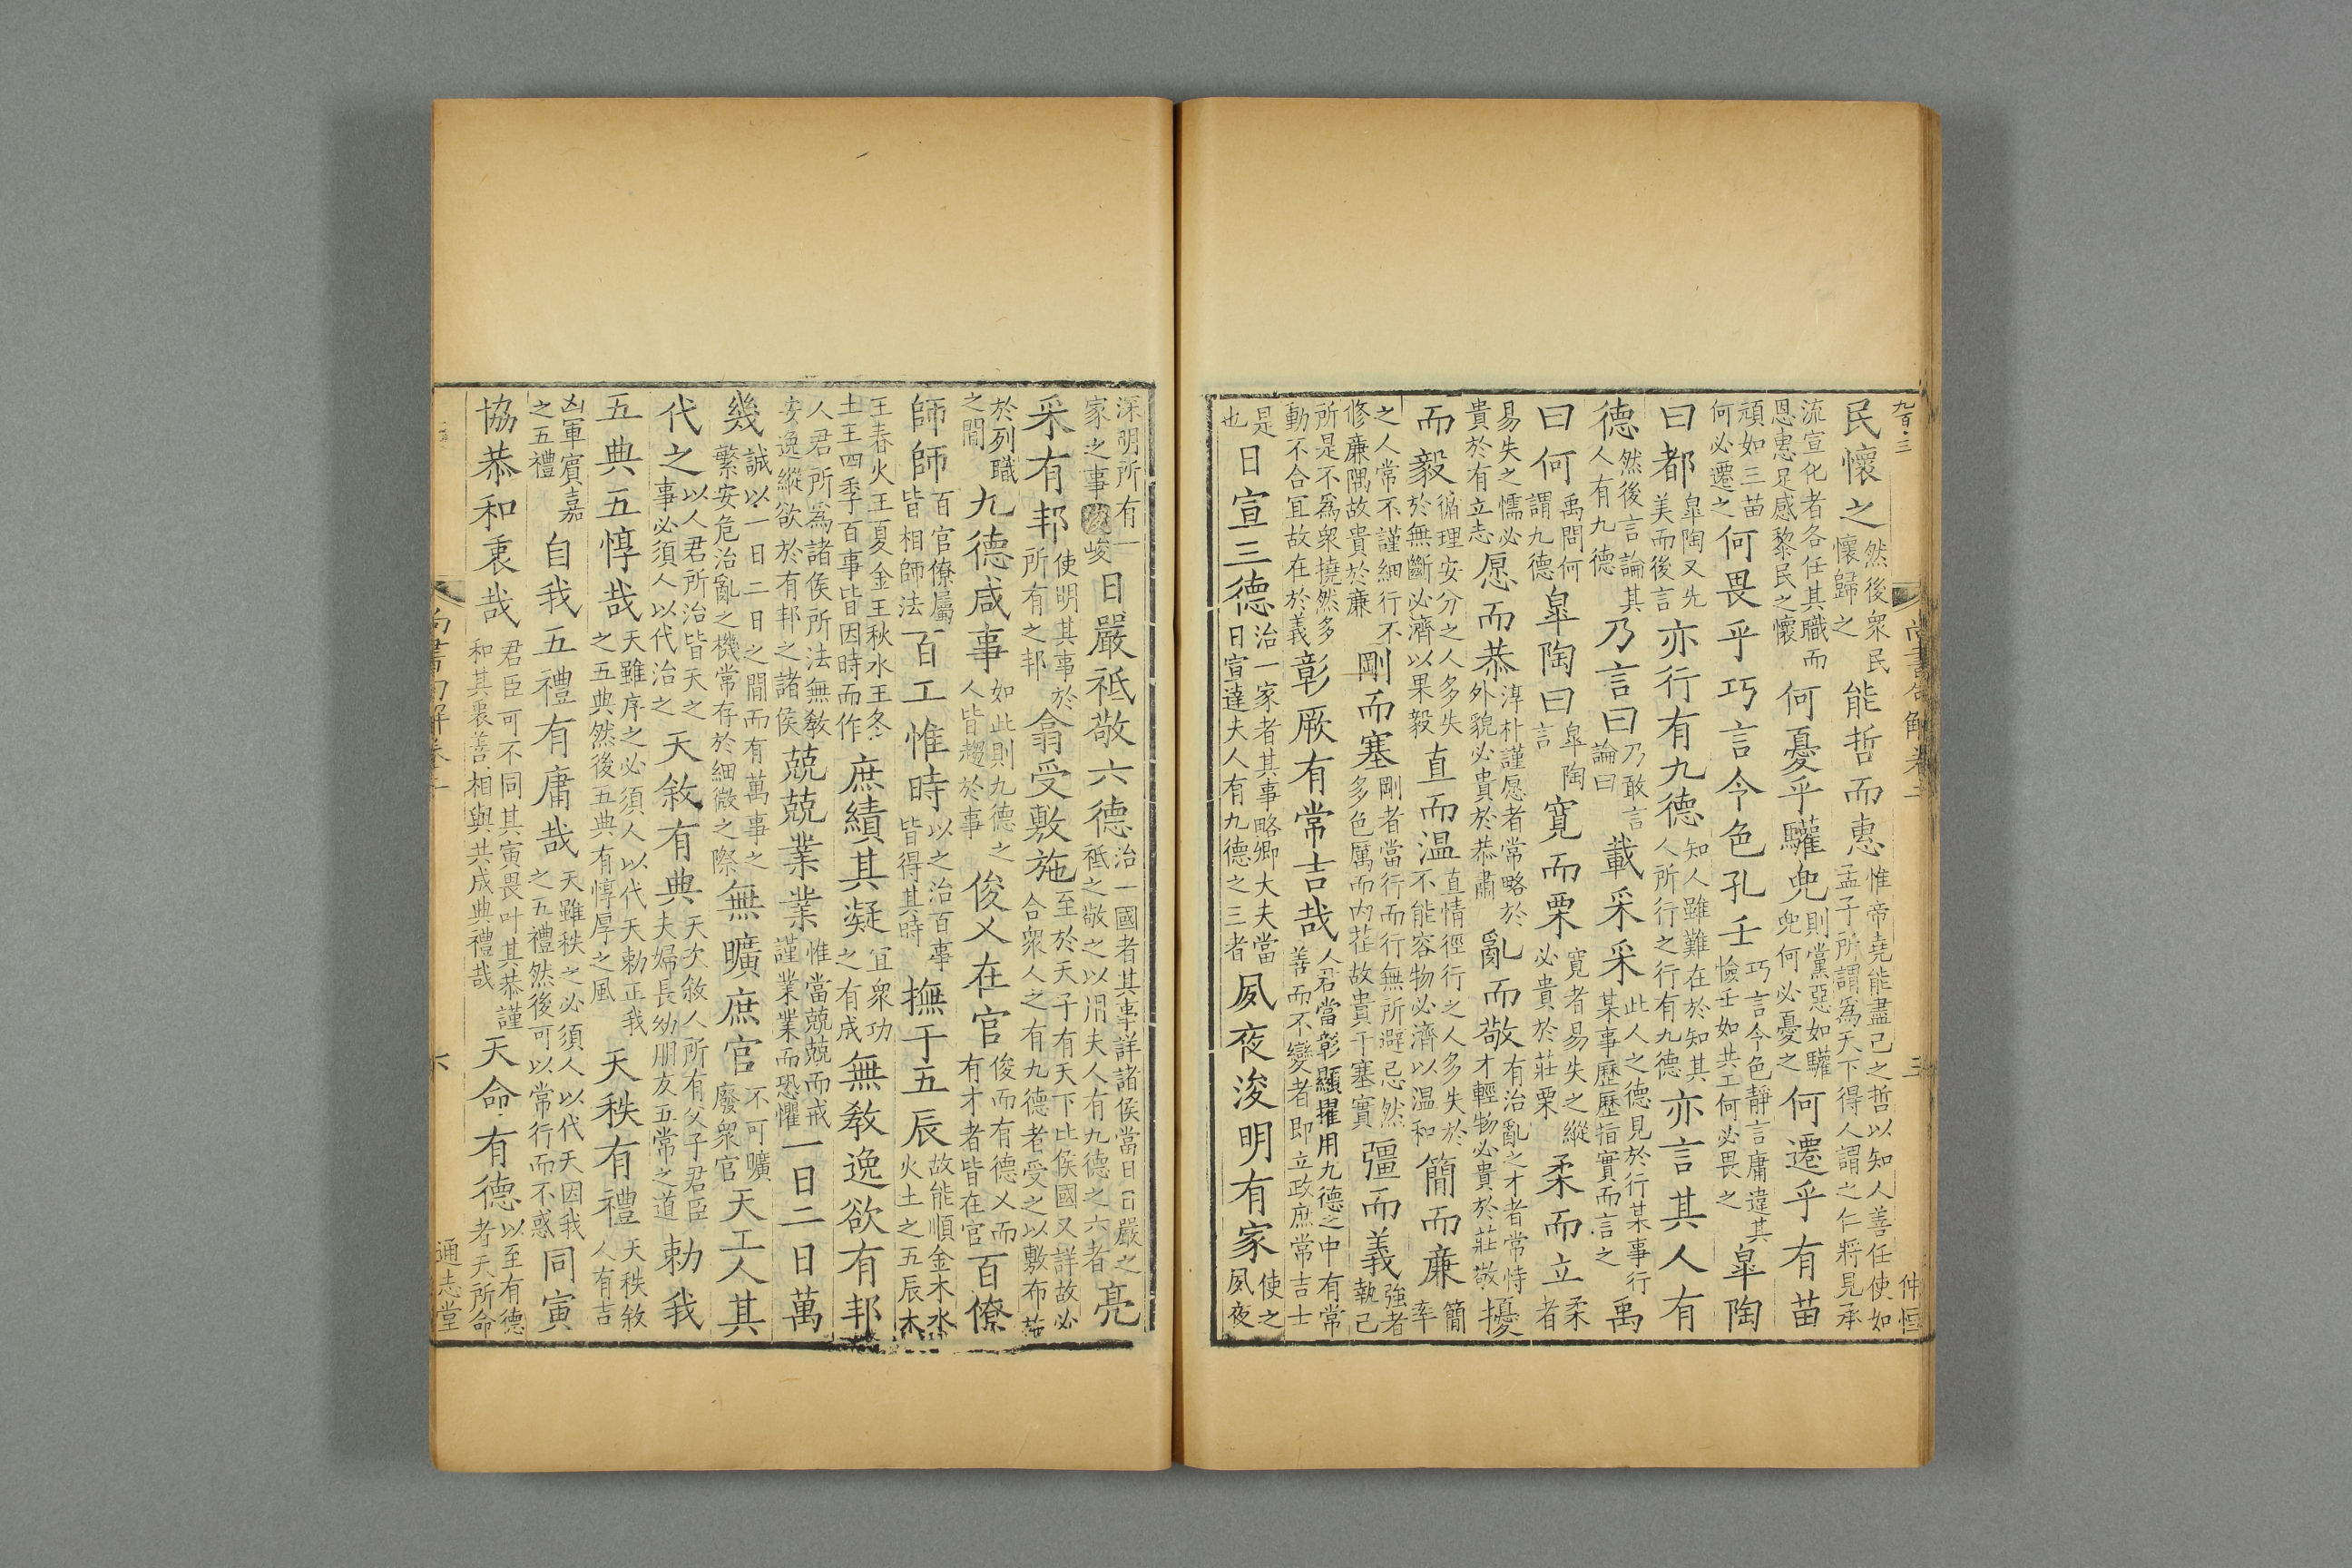 九百三
尚書句解卷二 三 仲恒
民懷之 然後衆民懷歸之 能哲而惠 惟帝堯能盡己之哲以知人善任使如孟子所謂爲天下得人謂之仁將見承
流宣化者各任其職而恩惠足感黎民之懷 何憂乎驩兜 則黨惡如驩兜何必憂之 何遷乎有苗
頑如三苗何必遷之 何畏乎巧言令色孔壬 巧言令色靜言庸違其憸壬如共工何必畏之 皐陶
曰都 皐陶又先美而後言 亦行有九德 知人雖難在於知其人所行之行有九德 亦言其人有
德 然後言論其人有九德 乃言曰 乃敢言論曰 載采采 此人之德見於行某事行某事歷歷指實而言之 禹
曰何 禹問何謂九德 皐陶曰 皐陶言 寛而栗 寛者易失之縱必貴於莊栗 柔而立 柔者
易失之懦必貴於有立志 愿而恭 淳朴謹愿者常略於外貌必貴於恭肅 亂而敬 有治亂之才者常恃才輕物必貴於莊敬 擾
而毅 循理安分之人多失於無斷必濟以果毅 直而温 直情徑行之人多失於不能容物必濟以温和 簡而廉 簡率
之人常不謹細行不修廉隅故貴於廉 剛而塞 剛者當行而行無所避忌然多色厲而内荏故貴于塞實 彊而義 強者執己
所是不爲衆撓然多動不合宜故在於義 彰厥有常吉哉 人君當彰顯擢用九德之中有常善而不變者即立政庶常吉士
是也 日宣三德 治一家者其事略卿大夫當日宣達夫人有九德之三者 夙夜浚明有家 使之夙夜
深明所有一家之事 浚峻 日嚴祗敬六德 治一國者其事詳諸侯當日日嚴之祗之敬之以明夫人有九德之六者 亮
采有邦 使明其事於所有之邦 翕受敷施 至於天子有天下比侯國又詳故必合衆人之有九德者受之以敷布施
於列職之間 九德咸事 如此則九德之人皆趨於事 俊乂在官 俊而有德乂而有才者皆在官 百僚
師師 百官僚屬皆相師法 百工惟時 以之治百事皆得其時 撫于五辰 故能順金木水火土之五辰木
王春火王夏金王秋水王冬土王四季百事皆因時而作 庶績其凝 宜衆功之有成 無教逸欲有邦
人君所爲諸侯所法無教安逸縱欲於有邦之諸侯 兢兢業業 惟當兢兢而戒謹業業而恐懼 一日二日萬
幾 誠以一日二日之間而有萬事之繁安危治亂之機常存於細微之際 無曠庶官 不可曠廢衆官 天工人其
代之 以人君所治皆天之事必須人以代治之 天敘有典 天次敘人所有父子君臣夫婦長幼朋友五常之道 勅我
五典五惇哉 天雖序之必須人以代天勅正我之五典然後五典有惇厚之風 天秩有禮 天秩敘人有吉
凶軍賔嘉之五禮 自我五禮有庸哉 天雖秩之必須人以代天因我之五禮然後可以常行而不惑 同寅
協恭和衷哉 君臣可不同其寅畏叶其恭謹和其衷善相與共成典禮哉 天命有德 以至有德者天所命
尚書句解卷二 六 通志堂